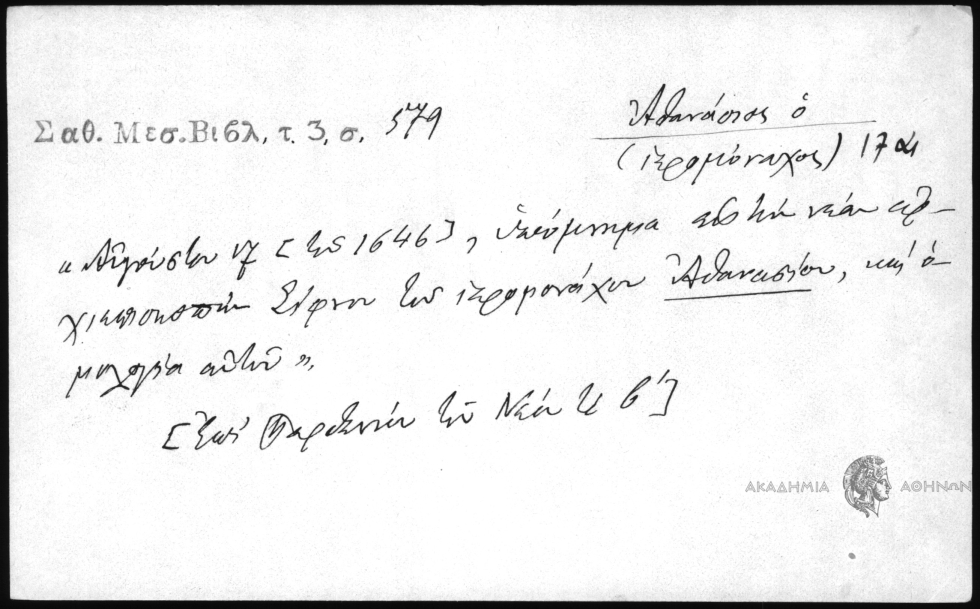 Σαθ. Μεσ. Βιβλ, τ. 3, σ. 579
Ἀθανάσιος ὁ
(ἱερομόναχος) 17 αι
« Αὐγούστου 17 [τοῦ 1646], ὑπόμνημα εἰς τὴν νέαν ἀρ-
χιεπισκοπὴν Σίφνου τοῦ ἱερομονάχου Ἀθανασίου, καὶ ὁ-
μολογία αὐτοῦ ».
[Ἐπὶ Παρθενίου τοῦ Νέου τοῦ β΄]
ΑΚΑΔΗΜΙΑ ΑΘΗΝΩΝ